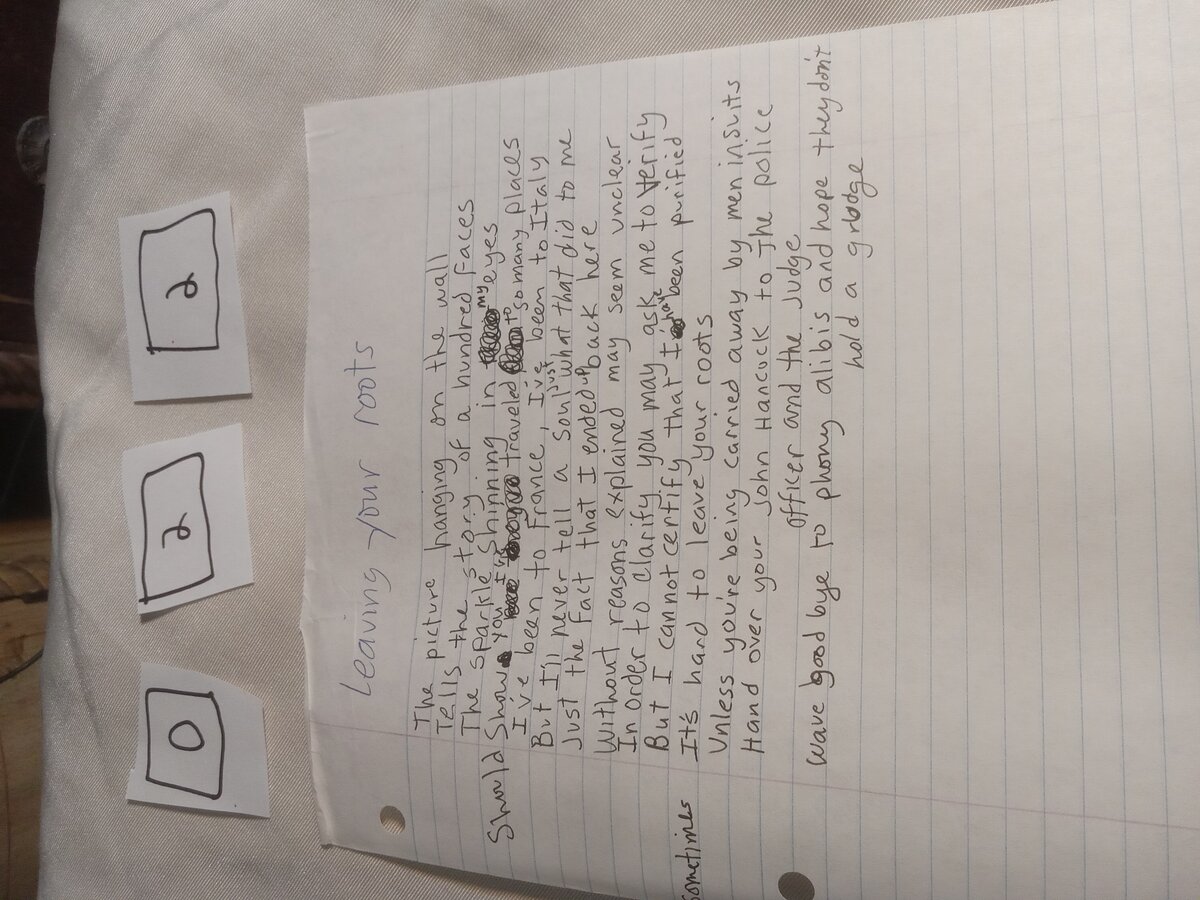 0 2 2
Leaving your roots
The picture hanging on the wall
Tells the story of a hundred faces
The sparkle shinning in my eyes
Should Show you I've traveled to so many places
I've been to France, I've been to Italy
But I'll never tell a soul just what that did to me
Just the fact that I ended up back here
Without reasons explained may seem unclear
In order to clarify you may ask me to verify
But I cannot certify that I have been purified
sometimes It's hard to leave your roots
Unless you're being carried away by men in suits
Hand over your John Hancock to the police
officer and the Judge
Wave good bye to phony alibis and hope they don't
hold a grudge